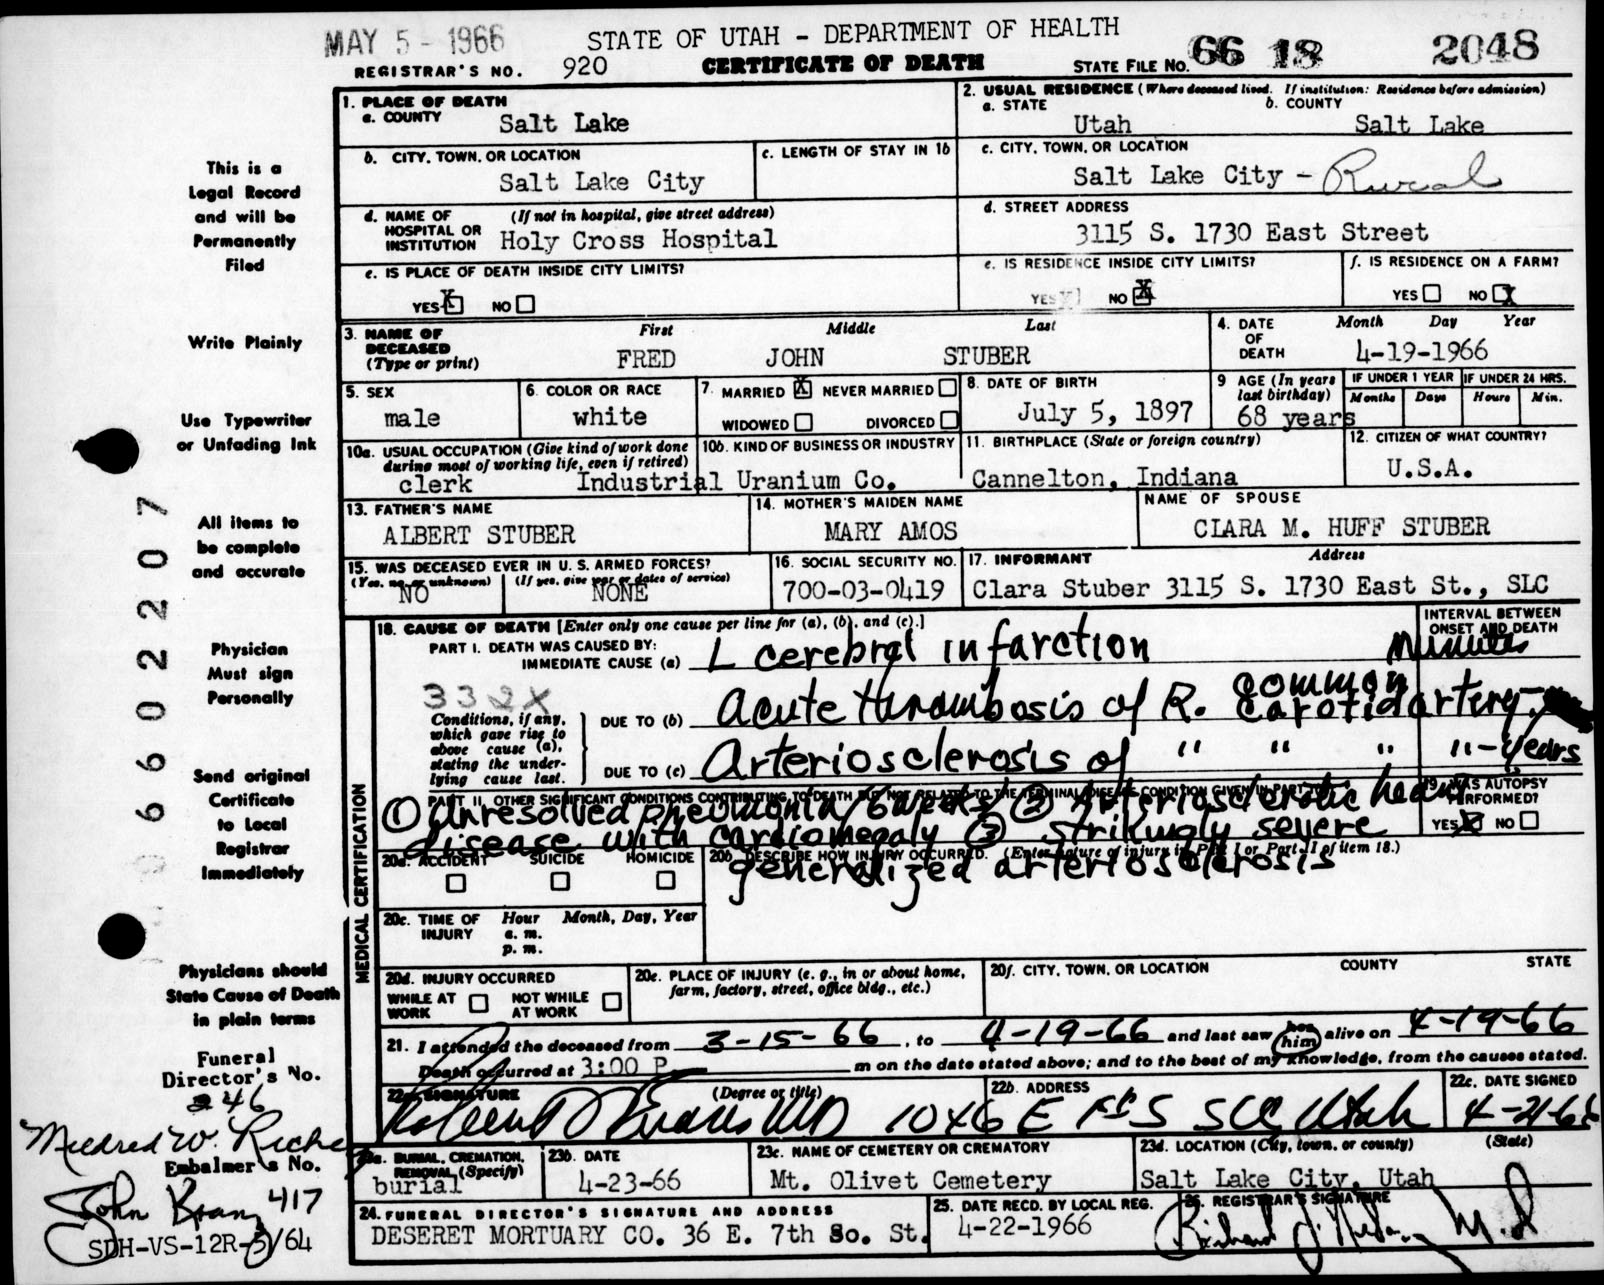 MAY 5 - 1966
STATE OF UTAH - DEPARTMENT OF HEALTH
REGISTRAR'S NO. 920
CERTIFICATE OF DEATH
STATE FILE NO. 66 18 2048
1. PLACE OF DEATH
a. COUNTY
Salt Lake
2. USUAL RESIDENCE (Where deceased lived. If institution: Residence before admission)
a. STATE
b. COUNTY
Utah
Salt Lake
b. CITY, TOWN, OR LOCATION
Salt Lake City
c. LENGTH OF STAY IN 1b
c. CITY, TOWN, OR LOCATION
Salt Lake City - Rural
d. NAME OF HOSPITAL OR INSTITUTION
(If not in hospital, give street address)
Holy Cross Hospital
d. STREET ADDRESS
3115 S. 1730 East Street
e. IS PLACE OF DEATH INSIDE CITY LIMITS?
YES X NO
e. IS RESIDENCE INSIDE CITY LIMITS?
YES NO X
f. IS RESIDENCE ON A FARM?
YES NO X
3. NAME OF DECEASED
(Type or print)
First Middle Last
FRED JOHN STUBER
4. DATE OF DEATH
Month Day Year
4-19-1966
5. SEX
male
6. COLOR OR RACE
white
7. MARRIED X NEVER MARRIED
WIDOWED DIVORCED
8. DATE OF BIRTH
July 5, 1897
9 AGE (In years last birthday)
68 years
IF UNDER 1 YEAR
Months Days
IF UNDER 24 HRS.
Hours Min.
10a. USUAL OCCUPATION (Give kind of work done during most of working life, even if retired)
clerk
10b. KIND OF BUSINESS OR INDUSTRY
Industrial Uranium Co.
11. BIRTHPLACE (State or foreign country)
Cannelton, Indiana
12. CITIZEN OF WHAT COUNTRY?
U.S.A.
13. FATHER'S NAME
ALBERT STUBER
14. MOTHER'S MAIDEN NAME
MARY AMOS
NAME OF SPOUSE
CLARA M. HUFF STUBER
15. WAS DECEASED EVER IN U. S. ARMED FORCES?
(Yes, no, or unknown) (If yes, give war or dates of service)
NO NONE
16. SOCIAL SECURITY NO.
700-03-0419
17. INFORMANT
Address
Clara Stuber 3115 S. 1730 East St., SLC
18. CAUSE OF DEATH [Enter only one cause per line for (a), (b), and (c).]
INTERVAL BETWEEN ONSET AND DEATH
PART I. DEATH WAS CAUSED BY:
IMMEDIATE CAUSE (a) L cerebral infarction Minutes
332X
Conditions, if any, which gave rise to above cause (a), stating the underlying cause last.
DUE TO (b) Acute thrombosis of R. common carotid artery -
DUE TO (c) Arteriosclerosis of " " " " - Years
PART II. OTHER SIGNIFICANT CONDITIONS CONTRIBUTING TO DEATH BUT NOT RELATED TO THE TERMINAL DISEASE CONDITION GIVEN IN PART I
① Unresolved pneumonia, 6 weeks ② Arteriosclerotic heart
disease with cardiomegaly ③ strikingly severe
generalized arteriosclerosis
19. WAS AUTOPSY PERFORMED?
YES X NO
20a. ACCIDENT SUICIDE HOMICIDE
20b. DESCRIBE HOW INJURY OCCURRED. (Enter nature of injury in Part I or Part II of item 18.)
20c. TIME OF INJURY
Hour Month, Day, Year
a. m.
p. m.
20d. INJURY OCCURRED
WHILE AT WORK NOT WHILE AT WORK
20e. PLACE OF INJURY (e. g., in or about home, farm, factory, street, office bldg., etc.)
20f. CITY, TOWN, OR LOCATION COUNTY STATE
21. I attended the deceased from 3-15-66, to 4-19-66 and last saw her him alive on 4-19-66
Death occurred at 3:00 P m on the date stated above; and to the best of my knowledge, from the causes stated.
22a. SIGNATURE (Degree or title)
Robert D Evans MD
22b. ADDRESS
1046 E 1st S SLC Utah
22c. DATE SIGNED
4-21-66
23a. BURIAL, CREMATION, REMOVAL (Specify)
burial
23b. DATE
4-23-66
23c. NAME OF CEMETERY OR CREMATORY
Mt. Olivet Cemetery
23d. LOCATION (City, town, or county) (State)
Salt Lake City, Utah
24. FUNERAL DIRECTOR'S SIGNATURE AND ADDRESS
DESERET MORTUARY CO. 36 E. 7th So. St.
25. DATE RECD. BY LOCAL REG.
4-22-1966
26. REGISTRAR'S SIGNATURE
MEDICAL CERTIFICATION
This is a
Legal Record
and will be
Permanently
Filed
Write Plainly
Use Typewriter
or Unfading Ink
All items to
be complete
and accurate
Physician
Must sign
Personally
Send original
Certificate
to Local
Registrar
Immediately
Physicians should
State Cause of Death
in plain terms
Funeral
Director's No.
246
Mildred W.
Embalmer's No.
John 417
SDH-VS-12R-3/64
66022207